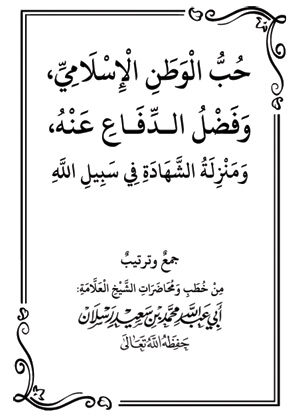 حُبُّ الْوَطَنِ الْإِسْلَامِيِّ،
وَفَضْلُ الـدِّفَـاعِ عَنْهُ،
وَمَنْزِلَةُ الشَّهَادَةِ فِي سَبِيلِ اللَّهِ
جمعٌ وترتيبٌ
مِنْ خُطَبِ وَمُحَاضَرَاتِ الشَّيْخِ الْعَلَّامَةِ:
أَبِي عَبْدِ اللَّهِ مُحَمَّدِ بْنِ سَعِيدٍ رَسْلَان
حَفِظَهُ اللَّهُ تَعَالَى